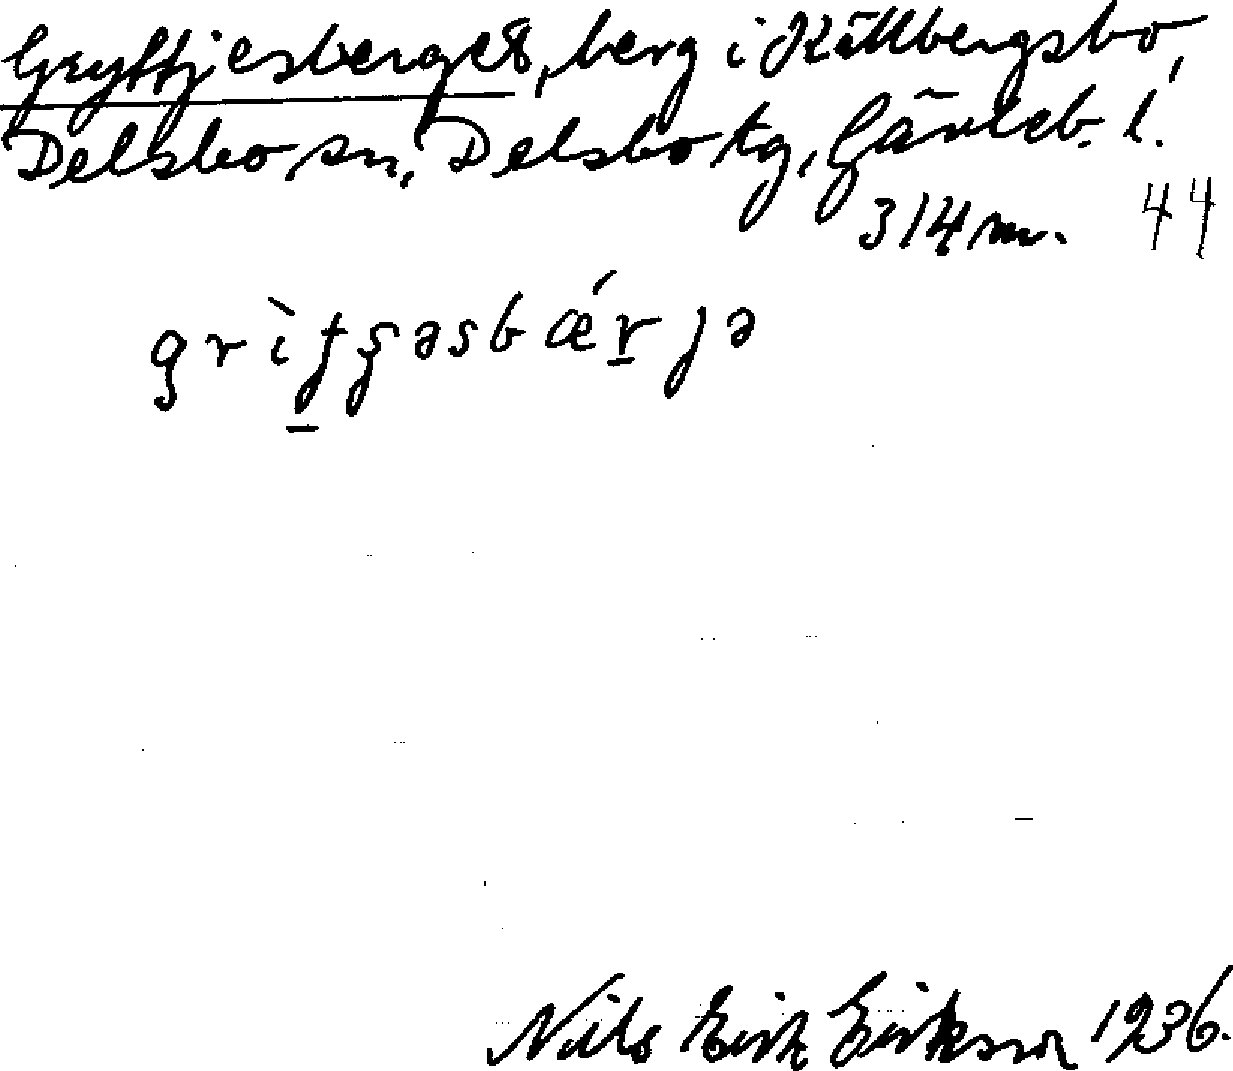 Gryftjesberget, berg i Källbergsbo,
Delsbo sn, Delsbo tg, Gävleb. l.
314 m. 44
grìftʃəsbǽrjə
Nils Erik Eriksson 1936.